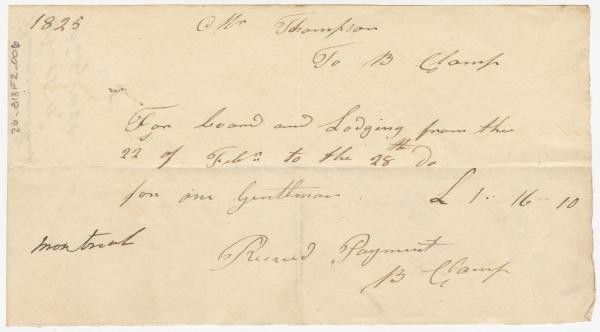 1825
Mr Thompson
To B Clamp
For board and Lodging from the
22 of Feb.y to the 28th do
for one Gentleman £ 1 " 16 " 10
Montreal
Received Payment
B Clamp
26-813F2-006